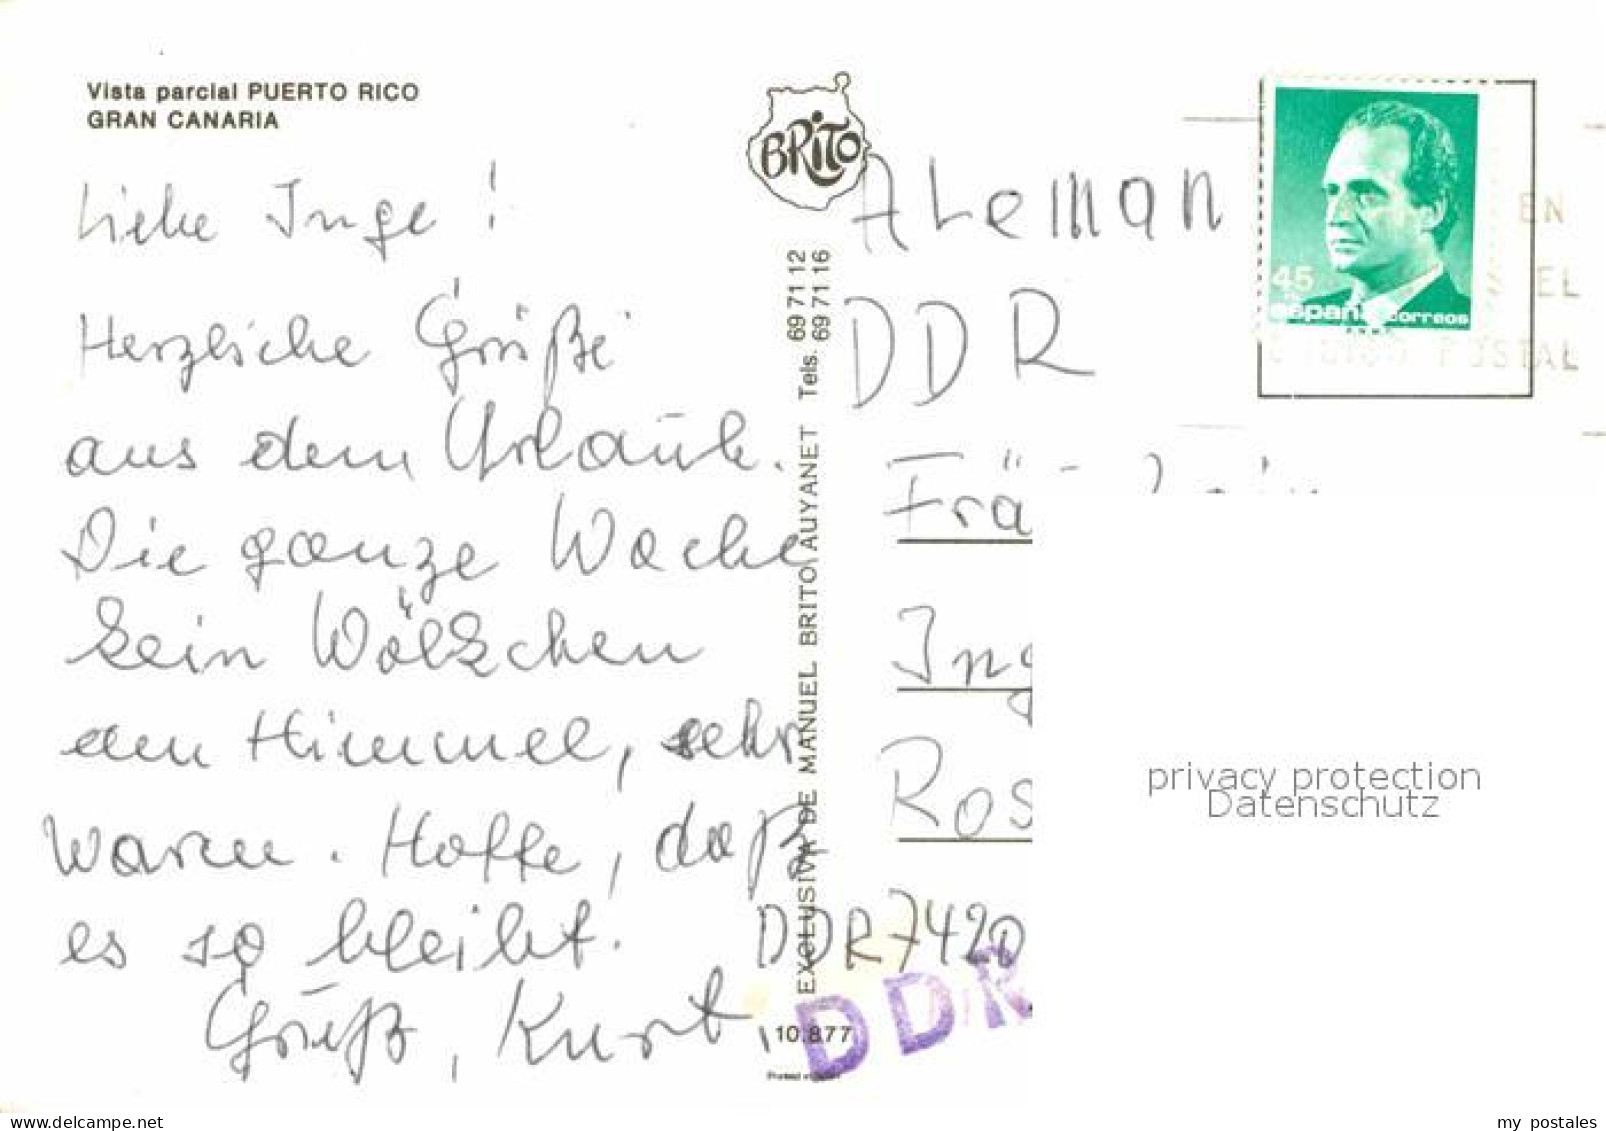 Vista parcial PUERTO RICO
GRAN CANARIA
Liebe Inge!
Herzliche Grüße
aus dem Urlaub.
Die ganze Woche
kein Wölkchen
am Himmel, sehr
warm. Hoffe, daß
es so bleibt.
Gruß, Kurt.
BRiTO
EXCLUSIVA DE MANUEL BRITO AUYANET Tels. 69 71 12
69 71 16
10.877
Printed in
ALeman
DDR
Frä
Ing
Ros
DDR 7420
DDR
45
españa correos
EN
EL
POSTAL
privacy protection
Datenschutz
www.delcampe.net
my_postales